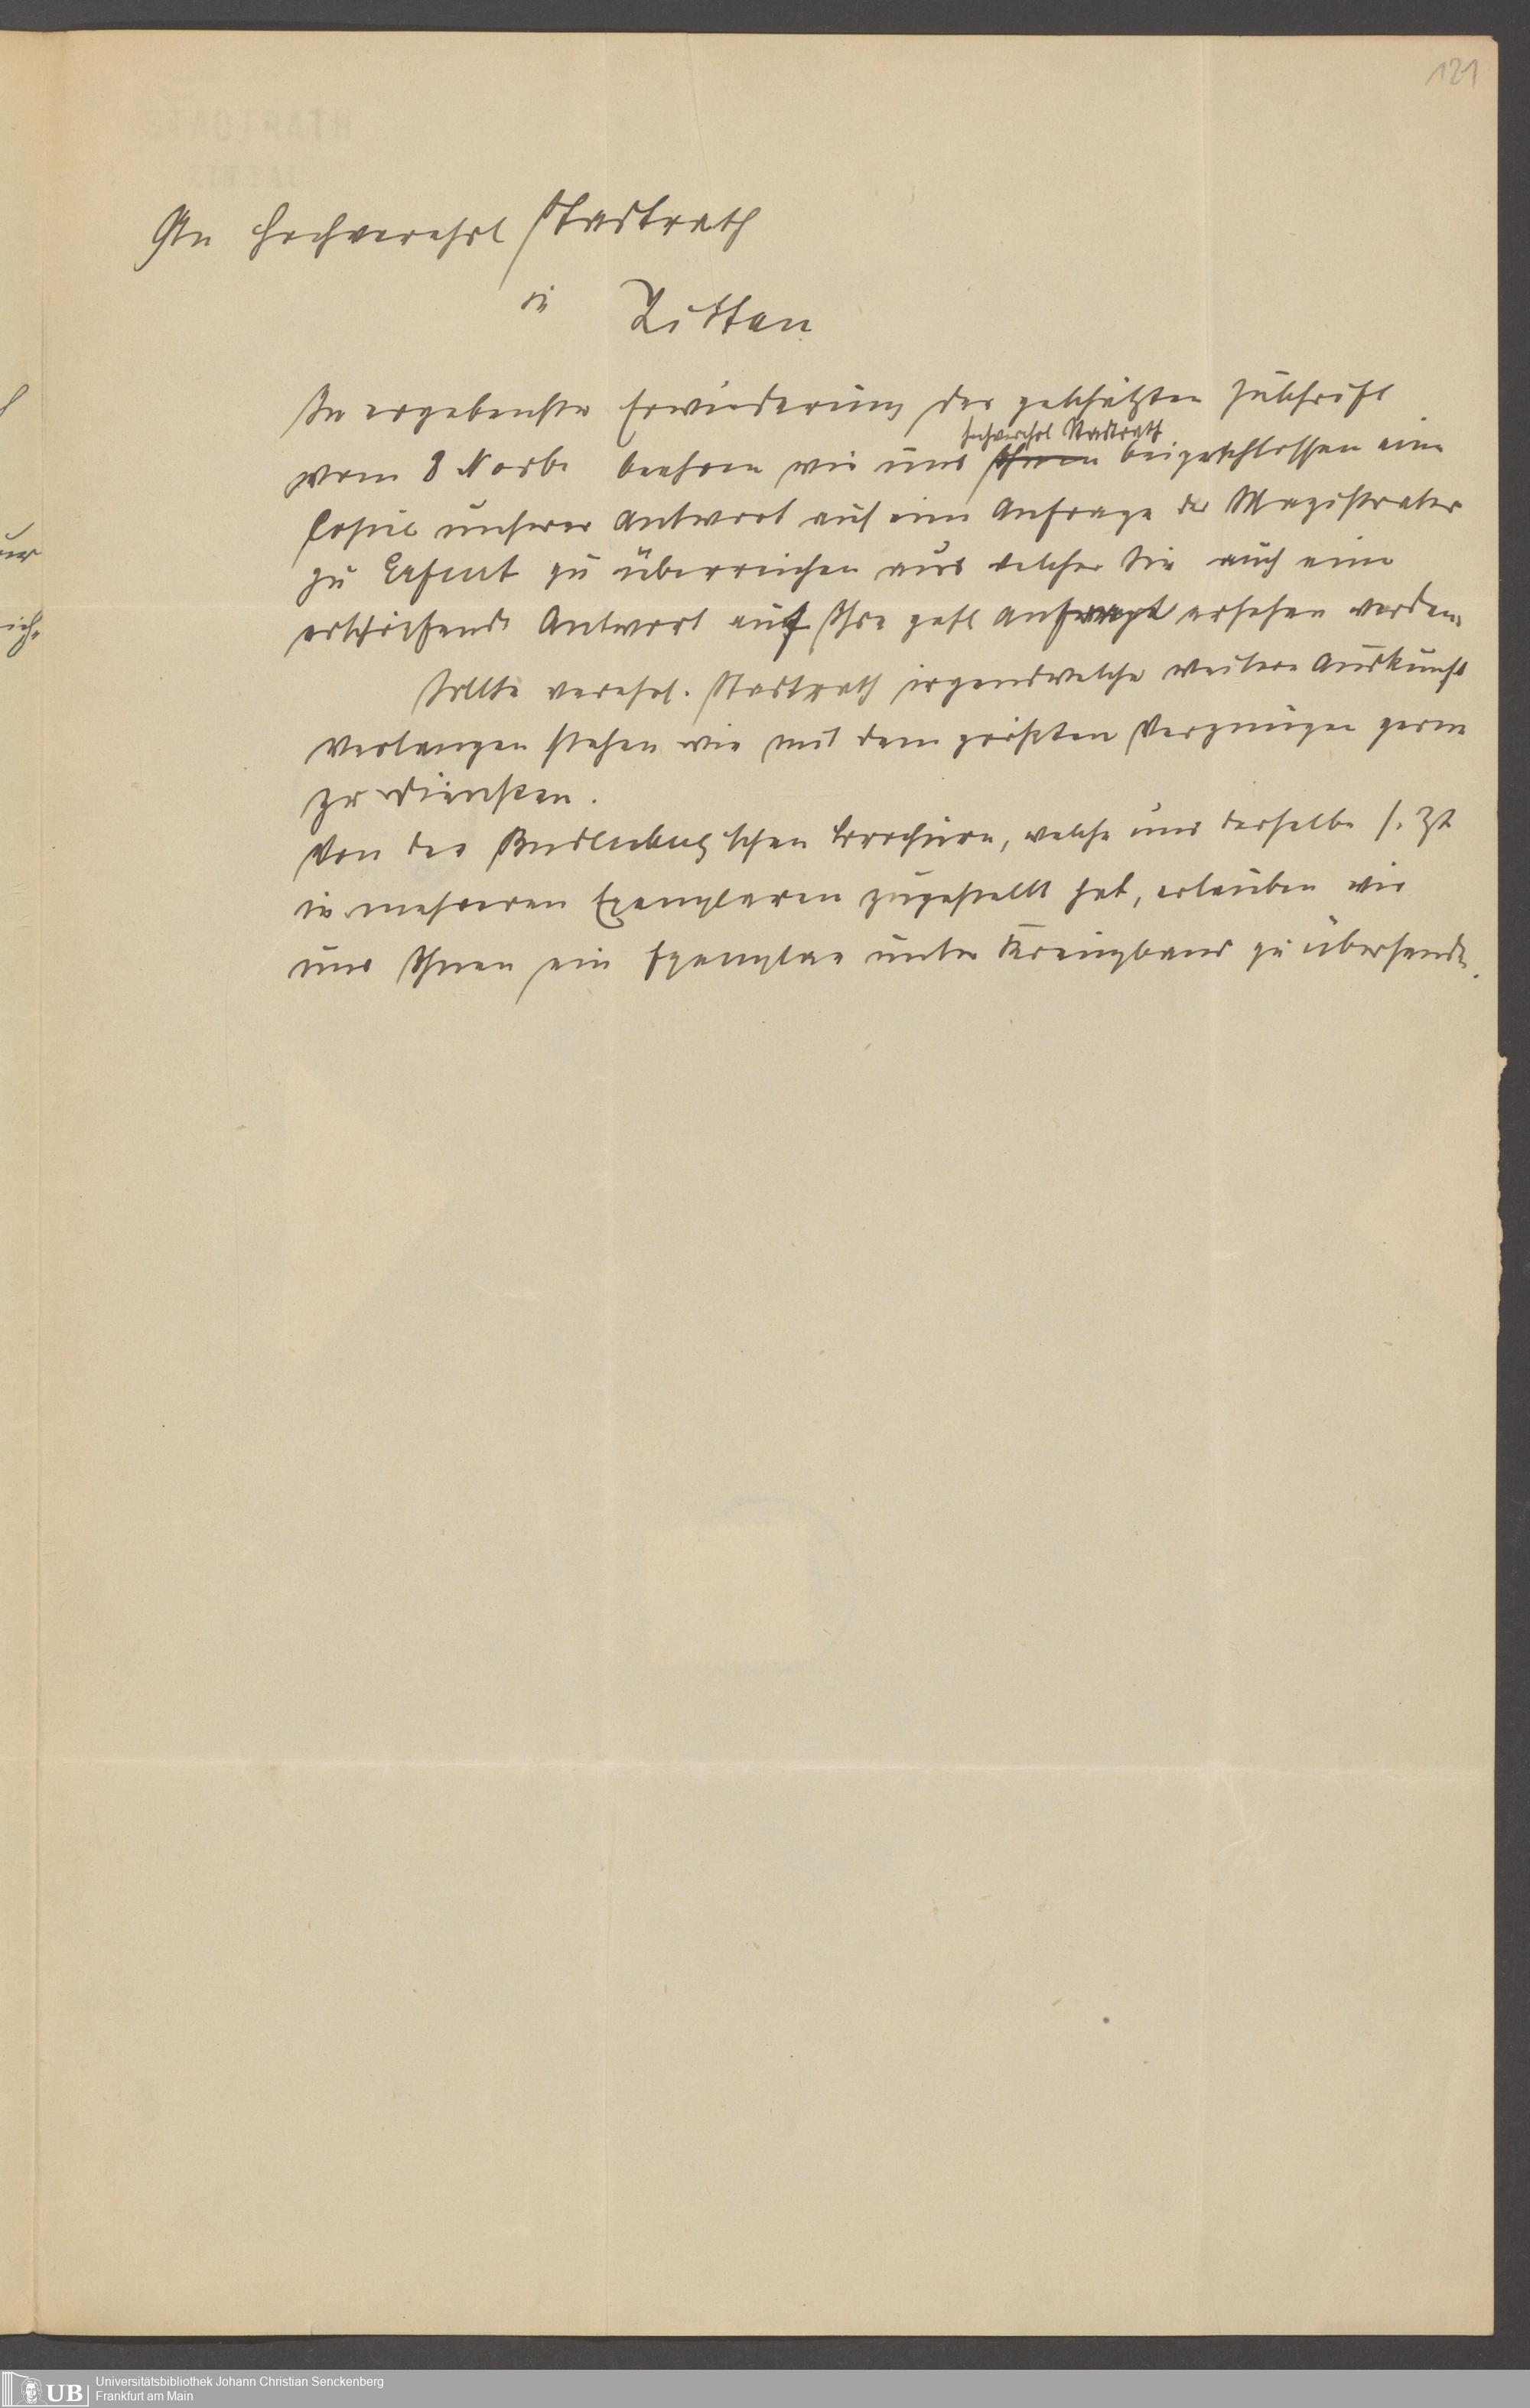 121
An hochverehrl Stadtrath
in Zittau
In ergebenster Erwiederung der geschätzten Zuschrift
hochverehrl Stadtrath
vom 8 Novbr beehren wir uns Ihnen beigeschlossen eine
Copie unserer Antwort auf eine Anfrage des Magistrates
zu Erfurt zu überreichen aus welcher Sie auch eine
erschöpfende Antwort auf Ihre gefl Anfrage ersehen werden.
Sollte verehrl. Stadtrath irgendwelche weitere Auskunft
verlangen stehen wir mit dem größten Vergnügen gerne
zu Diensten.
Von der schen Brochüre, welche uns derselbe s. Zt
in mehreren Exemplaren zugestellt hat, erlauben wir
uns Ihnen ein Exemplar unter Kreuzband zu übersenden.
UB
Universitätsbibliothek Johann Christian Senckenberg
Frankfurt am Main